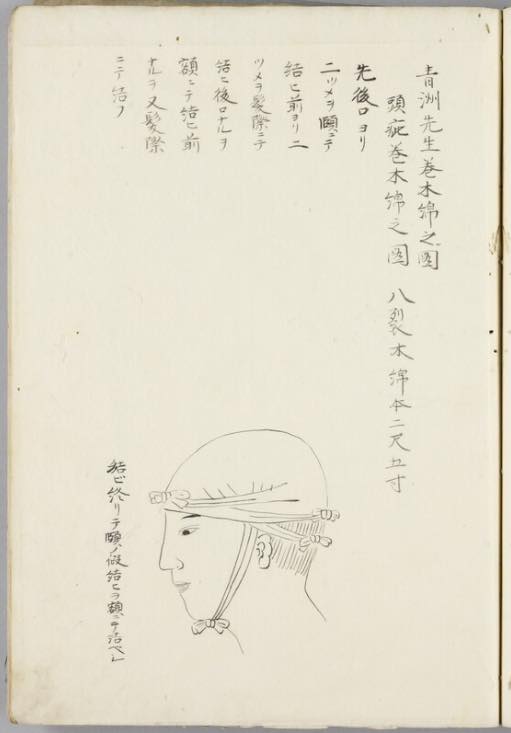 青洲先生巻木綿之図
頭疵巻木綿之図 八裂木綿本二尺五寸
先後口ヨリ
二ツメヲ頤ニテ
結ヒ前ヨリ二
ツメヲ髪際ニテ
結ヒ後口ナルヲ
額ニテ結ヒ前
ナルヲ又髪際
ニテ結フ
結ビ終リテ頤ノ仮結ヒヲ額ニテ結ベシ